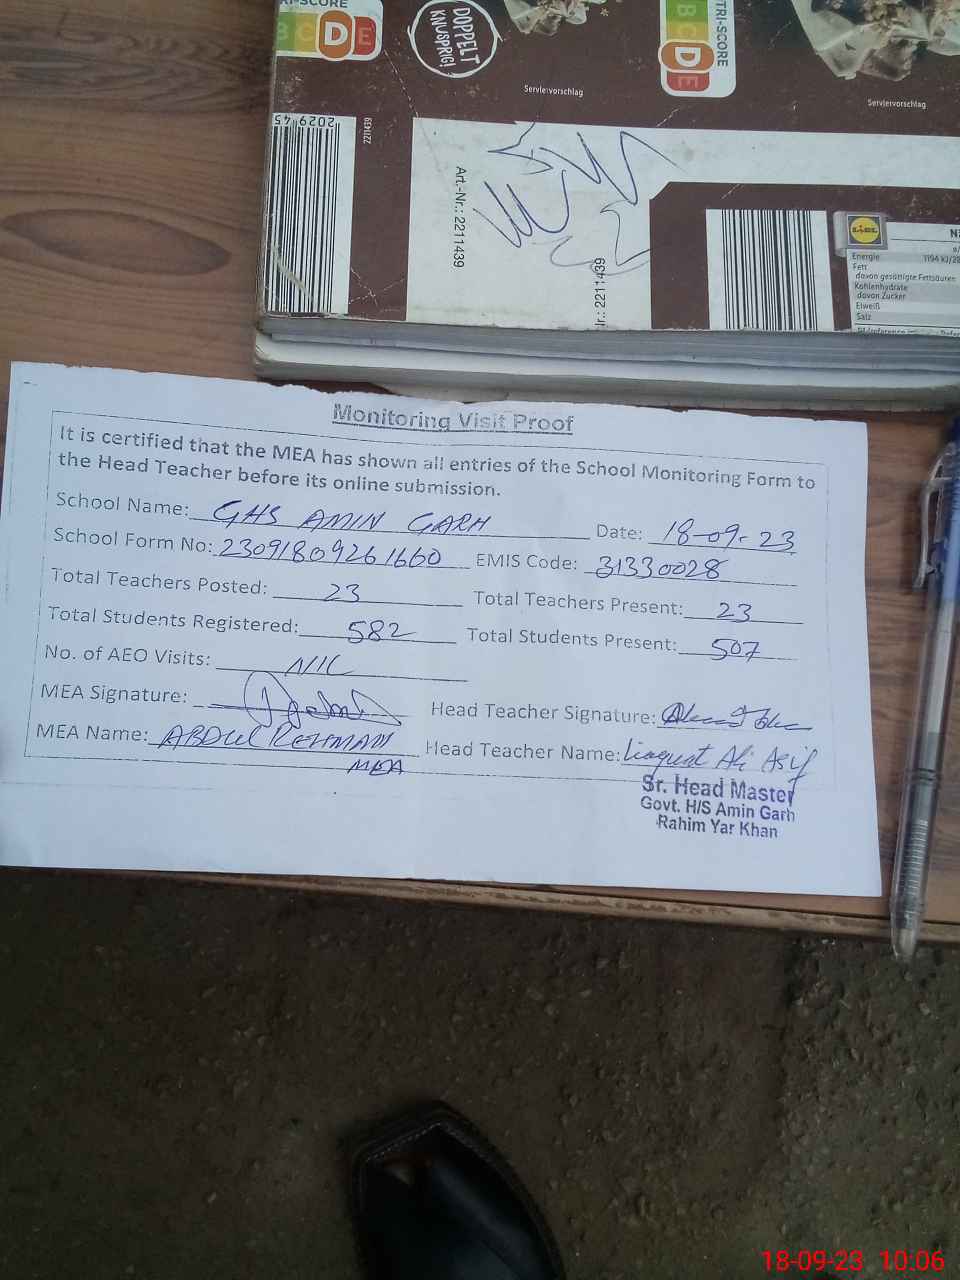 RI-SCORE
B C D E
DOPPELT
KNUSPRIG!
TRI-SCORE
B C D E
Serviervorschlag
Serviervorschlag
2029 45
2211439
Art.-Nr.: 2211439
Nr.: 2211439
LIDL
Energie 1194 kJ/28
Fett
davon gesättigte Fettsäuren
Kohlenhydrate
davon Zucker
Eiweiß
Salz
Monitoring Visit Proof
It is certified that the MEA has shown all entries of the School Monitoring Form to
the Head Teacher before its online submission.
School Name: GHS AMIN GARH Date: 18-09-23
School Form No: 23091809261660 EMIS Code: 31330028
Total Teachers Posted: 23 Total Teachers Present: 23
Total Students Registered: 582 Total Students Present: 507
No. of AEO Visits: NIL
MEA Signature: Head Teacher Signature:
MEA Name: ABDUL REHMAN Head Teacher Name: Liaquat Ali Asif
MEA
Sr. Head Master
Govt. H/S Amin Garh
Rahim Yar Khan
18-09-23 10:06